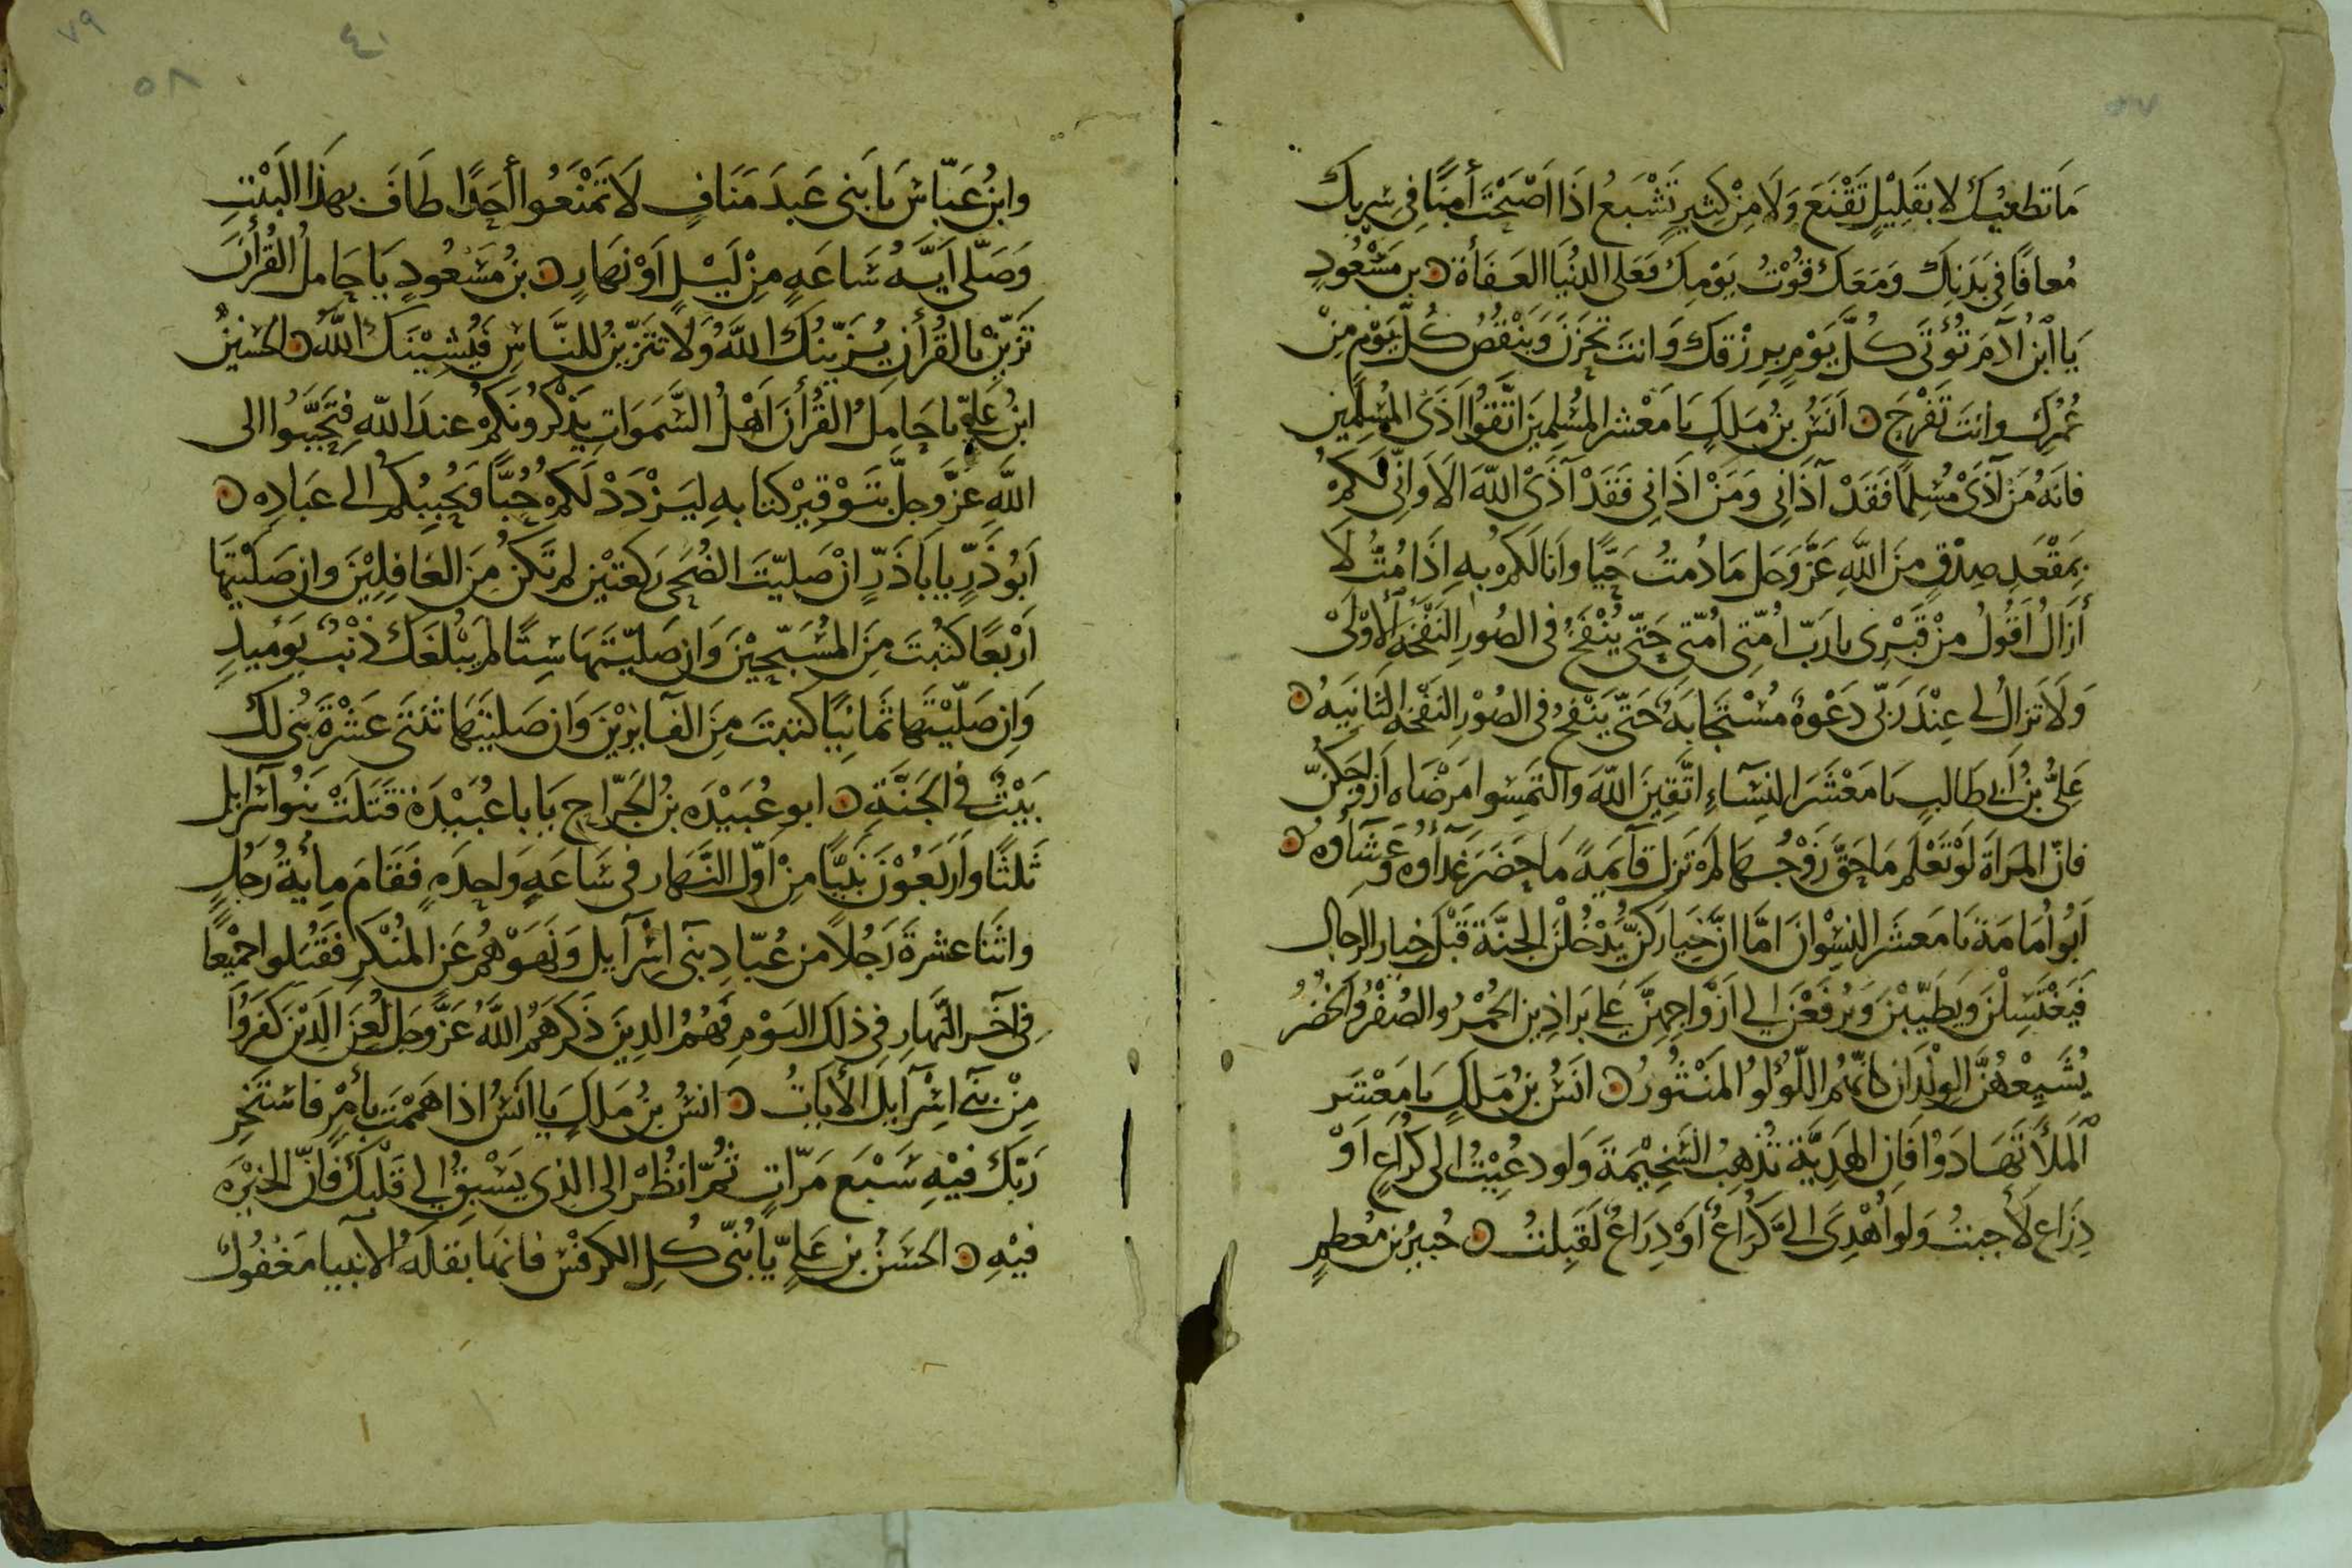 مَا تطغيك لا بقَلِيْلٍ تَقْنَع وَلَا مِنْ كثِيرٍ تَشْبَعُ اذَا اصْبَحْتَ أمِنًا فى سِربِك
مُعافًا فِى بَدَنِك وَمَعَك قوْتُ يَوْمِكَ فَعَلى الدُنْيَا العَفَأة بن مَسْعُودٍ
يَا ابن آدَمَ تُؤتَى كُلَّ يَوْمٍ بِرِزْقك وَانت تحْزَن وَيَنْقُصُ كُلَّ يَوْمٍ مِنْ
عُمْرِك وانتَ تَفْرَح أنَسُ بنُ مَلَكٍ يَا مَعْشر المُسْلِمِيَن اتَّقُوا اذَى المُسْلِمِين
فانَهُ مَن آذَى مُسْلِمًا فَقَدْ آذَانِى وَمَنْ اذَانِى فَقَدْ آذَىْ اللّهَ الَا وَانِّى لكمْ
بِمَقْعَدِ صِدْقٍ مِنَ اللّهِ عَزَّ وَجَل مَا دُمتُ حَيًّا وانَا لكم بِهِ اِذَا مُتُّ لَا
أزَالُ اقُولُ مِنْ قَبْرِى يارَبّ امّتِى امّتِى حَتّى يُنْفَخُ فى الصُورِ النَفْخَه الاوْلىْ
وَلَا تزَالُ لى عِنْدَ رَبّى دَعْوهٌ مُسْتَجَابَه حَتّى يَنْفخُ فى الصُوْرِ النَفْخَه الثَانِيَه
عَلِىُّ بنُ أبى طَالِبٍ يَا مَعْشَرَ النِسَآءِ اتَّقِينَ اللّهَ والتَمِسُوا مَرْضَاه ازوَاجَكُنّ
فانّ المَراَة لَوْ تَعْلَم مَا حَقّ زَوْجُهَا لمْ تَزل قآئمَةً مَا حَضَرَ غدَأوه وَعَشَآوه
ابُوا مَامَة يَا مَعشَر النِسْوان امَّا انَّ خِيَارَكنّ يَدْخُلْنَ الجنّة قَبْل خيار الرجال
فَيَغْتَسِلْنَ ويَطَيّبْنَ وَيُرفَعْنَ الى ازْوَاجِهِنَّ عَلى بَرَاذِين الحُمْرُ والصُفْرُ والخُضْرُ
يُشَيِعْهُنَّ الوِلْدَان كانّهُم اللّوْلُو المَنْثُورُ انَسُ بنُ مَلَكٍ يَا مَعْشَر
اَلمَلأ تَهَادَوْا فَاِن الهَدِيَّة تُذهِبُ السّخِيْمَة وَلو دعِيْتُ الى كرَاعٍ اوْ
ذِرَاع لأجبتُ وَلو أهْدِىَ الىَّ كرَاعٌ اوْ ذِرَاعٌ لَقَبِلتُ جُبيرُ بن مُعطِمٍ
وابنُ عَبّاسٍ يَا بَنى عَبدَ مَنَافٍ لَا تَمْنَعُوا أحَدًا طَافَ بهذَا البَيْتِ
وَصَلّى ايَّهُ سَاعَهٍ مِنْ لَيْلٍ اَوْ نَهَارٍ بنُ مَسْعُودٍ يَا حَامِلُ القُرأنَ
تزيّنْ بالقُرْأن يُزَيّنُكَ اللّهُ وَلا تتَزَيّنُ للنّاسِ فَيُشِيْنَك اللّهُ الحُسَيْنُ
ابنُ عَلِيّ يا حَامِلَ القُرْأنَ اهْلُ السَّمَوَاتِ يَذْكرُونَكمْ عندَ اللّه فتحَبَّبُوا الى
اللّهِ عَزَّ وجلّ بتَوْقِيْر كتَابهِ ليَزْدَدْ لَكمْ حُبًّا وَيُحبِبُكم الى عَبَادِه
ابُو ذَرٍّ يا ابا ذَرٍّ انْ صَليّتَ الضُحَى رَكعتيْن لم تَكنْ مِنَ الغافِلِيْنَ وان صَلَيْتَها
ارْبَعًا كتبْتَ مِنَ المُسَبّحِيْنَ وَان صَليّتَهَا سِتًا لم يَبْلغك ذنْبٌ يَومَيذٍ
وَاِن صَلّيْتَها ثَمَانِيًا كتبتَ مِنَ الفآئزِيْنَ وَان صَليْتَهَا ثنَتَى عَشْرَة بُنِى لك
بَيْتٌ فى الجَنَّةِ ابو عُبَيْدَه بن الجَرَّاحِ يَا ابا عُبَيْدَة قَتَلتْ بَنُوا اسْرآيل
ثَلثًا واَربَعُوْن نَبيًّا مِنْ اوّل النَهَار فى سَاعَهٍ وَاحِدَهٍ فَقَامَ مِائَةُ رَجُلٍ
واثنَا عشرةَ رَجُلًا من عُبّادِ بَنى اسْرآيل وَنَهَوْهُم عَن المُنْكَر فَقَتلوا جَمْيعًا
فى آخَر النَّهَارِ فى ذلك اليَوْمِ فَهُمُ الذِينَ ذَكرَهمُ اللّهُ عَزَّ وجَل لُعِنَ الَّذِينَ كَفَرُوا
مِنْ بَنى اسْرآيلَ الأيَاتُ انسُ بنُ مَلَكٍ يا انَسُ اذا هَمَمْتَ بأمْرٍ فاسْتَخِر
رَبّك فيْهِ سَبْعَ مَرّاتٍ ثُمّ انظُرْ الى الذِى يَسْبِقُ الى قَلْبِك فَاِنّ الخيْرَه
فيْهِ الحَسَنُ بن عَلِيٍّ يا بُنَيّ كُلِ الكرفْس فانهَا بَقلةُ الانْبيَا مَغْفُولٌ
٥٨
٧٩
٤٠